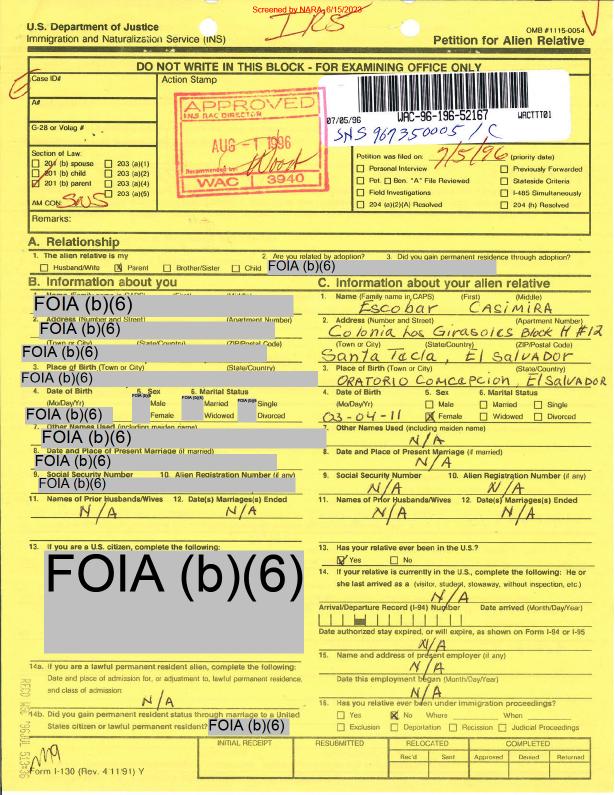 Screened by NARA, 6/15/2023
IRS
U.S. Department of Justice
Immigration and Naturalization Service (INS)
OMB #1115-0054
Petition for Alien Relative
DO NOT WRITE IN THIS BLOCK - FOR EXAMINING OFFICE ONLY
Case ID#
Action Stamp
A#
G-28 or Volag #
Section of Law:
201 (b) spouse 203 (a)(1)
201 (b) child 203 (a)(2)
201 (b) parent 203 (a)(4)
203 (a)(5)
AM CON: SNS
APPROVED
INS WAC DIRECTOR
AUG -1 1996
Recommended by
WAC 3940
07/05/96 WAC-96-196-52167 WACTTT01
SNS 967350005 / C
Petition was filed on: 7/5/96 (priority date)
Personal Interview Previously Forwarded
Pet. Ben. "A" File Reviewed Stateside Criteria
Field Investigations I-485 Simultaneously
204 (a)(2)(A) Resolved 204 (h) Resolved
Remarks:
A. Relationship
1. The alien relative is my
Husband/Wife X Parent Brother/Sister Child
2. Are you related by adoption?
3. Did you gain permanent residence through adoption?
FOIA (b)(6)
B. Information about you
FOIA (b)(6)
2. Address (Number and Street) (Apartment Number)
FOIA (b)(6)
(Town or City) (State/Country) (ZIP/Postal Code)
FOIA (b)(6)
3. Place of Birth (Town or City) (State/Country)
FOIA (b)(6)
4. Date of Birth 5. Sex 6. Marital Status
(Mo/Day/Yr) Male Married Single
FOIA (b)(6) Female Widowed Divorced
7. Other Names Used (including maiden name)
FOIA (b)(6)
8. Date and Place of Present Marriage (if married)
FOIA (b)(6)
9. Social Security Number 10. Alien Registration Number (if any)
FOIA (b)(6)
11. Names of Prior Husbands/Wives 12. Date(s) Marriages(s) Ended
N/A N/A
13. If you are a U.S. citizen, complete the following:
FOIA (b)(6)
14a. If you are a lawful permanent resident alien, complete the following:
Date and place of admission for, or adjustment to, lawful permanent residence,
and class of admission:
N/A
14b. Did you gain permanent resident status through marriage to a United
States citizen or lawful permanent resident? FOIA (b)(6)
C. Information about your alien relative
1. Name (Family name in CAPS) (First) (Middle)
Escobar CASIMIRA
2. Address (Number and Street) (Apartment Number)
Colonia Los Girasoles Block H #12
(Town or City) (State/Country) (ZIP/Postal Code)
Santa Tecla, El Salvador
3. Place of Birth (Town or City) (State/Country)
ORATORIO COMCEPCION, El SALVADOR
4. Date of Birth 5. Sex 6. Marital Status
(Mo/Day/Yr) Male Married Single
03-04-11 X Female Widowed Divorced
7. Other Names Used (including maiden name)
N/A
8. Date and Place of Present Marriage (if married)
N/A
9. Social Security Number 10. Alien Registration Number (if any)
N/A N/A
11. Names of Prior Husbands/Wives 12. Date(s) Marriages(s) Ended
N/A N/A
13. Has your relative ever been in the U.S.?
Yes No
14. If your relative is currently in the U.S., complete the following: He or
she last arrived as a (visitor, student, stowaway, without inspection, etc.)
N/A
Arrival/Departure Record (I-94) Number Date arrived (Month/Day/Year)
Date authorized stay expired, or will expire, as shown on Form I-94 or I-95
N/A
15. Name and address of present employer (if any)
N/A
Date this employment began (Month/Day/Year)
N/A
16. Has your relative ever been under immigration proceedings?
Yes X No Where When
Exclusion Deportation Recission Judicial Proceedings
INITIAL RECEIPT RESUBMITTED RELOCATED COMPLETED
Rec'd Sent Approved Denied Returned
Form I-130 (Rev. 4/11/91) Y